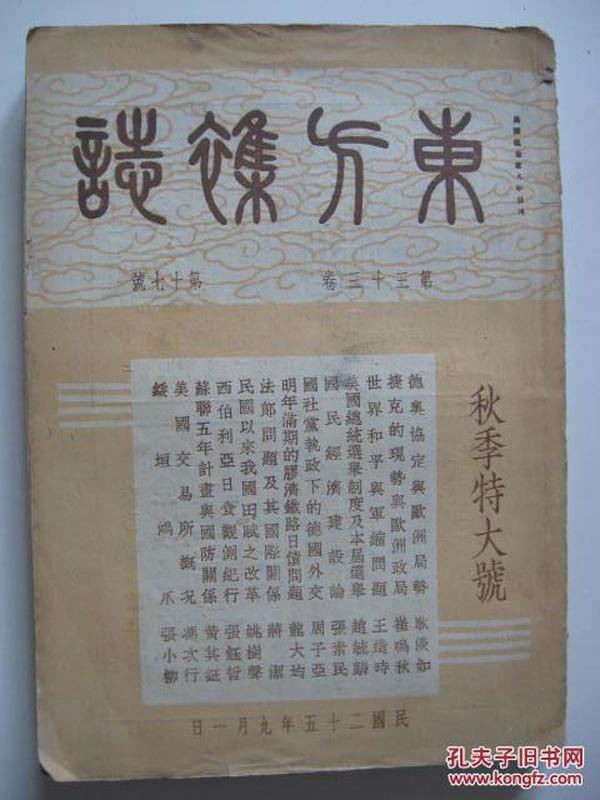 東方雜誌
第三十三卷 第十七號
秋季特大號
德奧協定與歐洲局勢 耿淡如
捷克的現勢與歐洲政局 崔鳴秋
世界和平與軍縮問題 王造時
美國總統選舉制度及本屆選舉 趙毓麟
國民經濟建設論 張素民
國社黨執政下的德國外交 周子亞
明年滿期的膠濟鐵路日債問題 龍大均
法郎問題及其國際關係 蔣潔
民國以來我國田賦之改革 姚樹聲
西伯利亞日食觀測紀行 張鈺哲
蘇聯五年計畫與國防關係 黃其
美國交易所概況 馮次行
綏垣鴻爪 張小柳
民國二十五年九月一日
孔夫子旧书网
www.kongfz.com